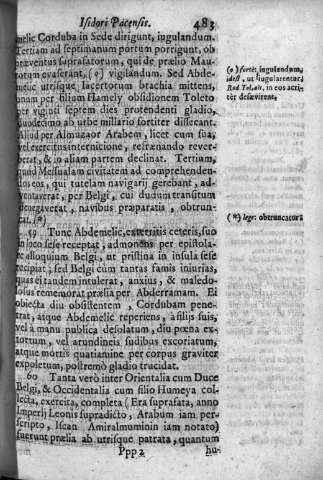 Isidori Pacensis. 483
melic Corduba in Sede dirigunt, iugulandum.
Tertiam ad septimanum portum porrigunt, ob
præventus suprafatorum, qui de prælio Mau-
rorum evaserant, (o) vigilandum. Sed Abde-
melic utrisque lacertorum brachia mittens,
unam per filium Hamely obsidionem Toleto
per viginti septem dies protendenti gladio,
duodecimo ab urbe millario fortiter dissecant.
Aliud per Almuzaor Arabem, licet cum sua,
vel exercitus internicione, refrænando rever-
berat, & in aliam partem declinat. Tertium,
quod Messualam civitatem ad comprehenden-
dos eos, qui tutelam navigarij gerebant, ad-
ventaverat, per Belgi, cui dudum transitum
denegaverat, navibus præparatis, obtrun-
cat. (*)
59 Tunc Abdemelic, exterritis ceteris, suo
in loco sese receptat, admonens per epistola-
re alloquium Belgi, ut pristina in insula sese
recipiat; sed Belgi cum tantas famis iniurias,
quas ei tandem intulerat, anxius, & maledo-
losus rememorat prælia per Abderramam. Ei
obiecta diu obsistentem, Cordubam pene-
trat, atque Abdemelic reperiens, à filijs suis,
vel à manu publica desolatum, diu pœna ex-
tortum, vel arundineis sudibus excoriatum,
atque mortis quatiamine per corpus graviter
expoletum, postremò gladio trucidat.
60 Tanta verò inter Orientalia cum Duce
Belgi, & Occidentalia cum filio Humeya col-
lecta, exercita, completa (Era suprafata, anno
Imperij Leonis supradicto, Arabum iam per-
scripto, Iscan Amiralmuminin iam notato)
fuerunt prælia ab utrisque patrata, quantum
Ppp 2 hu-
(o) fortè, iugulandum,
idest, ut iugularentur;
Rod Tol. ait, in eos acri-
tèr desævirent,
(*) lege: obtruncatura